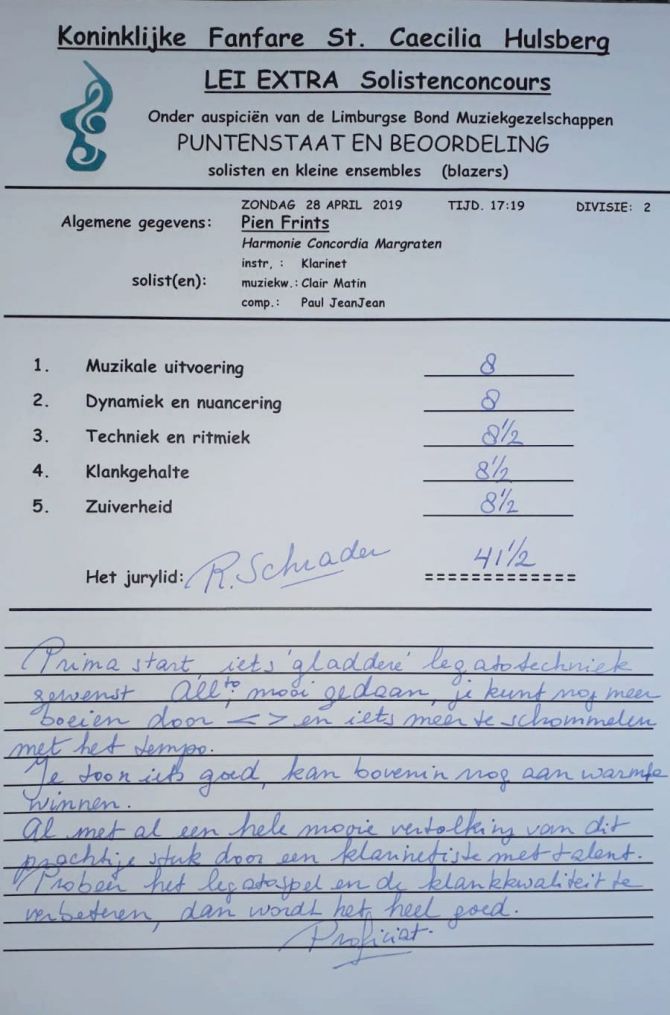 Koninklijke Fanfare St. Caecilia Hulsberg
LEI EXTRA Solistenconcours
Onder auspiciën van de Limburgse Bond Muziekgezelschappen
PUNTENSTAAT EN BEOORDELING
solisten en kleine ensembles (blazers)
ZONDAG 28 APRIL 2019 TIJD. 17:19 DIVISIE: 2
Algemene gegevens: Pien Frints
Harmonie Concordia Margraten
instr, : Klarinet
solist(en): muziekw.: Clair Matin
comp.: Paul JeanJean
1. Muzikale uitvoering 8
2. Dynamiek en nuancering 8
3. Techniek en ritmiek 8 1/2
4. Klankgehalte 8 1/2
5. Zuiverheid 8 1/2
Het jurylid: R. Schrader 41 1/2
============
Prima start, iets 'gladdere' legatotechniek
gewenst. Allto, mooi gedaan, je kunt nog meer
boeien door < > en iets meer te schommelen
met het tempo.
Je toon iets goed, kan bovenin nog aan warmte
winnen.
Al met al een hele mooie vertolking van dit
prachtije stuk door een klarinetiste met talent.
Probeer het legatospel en de klankkwaliteit te
verbeteren, dan wordt het heel goed.
Proficiat.